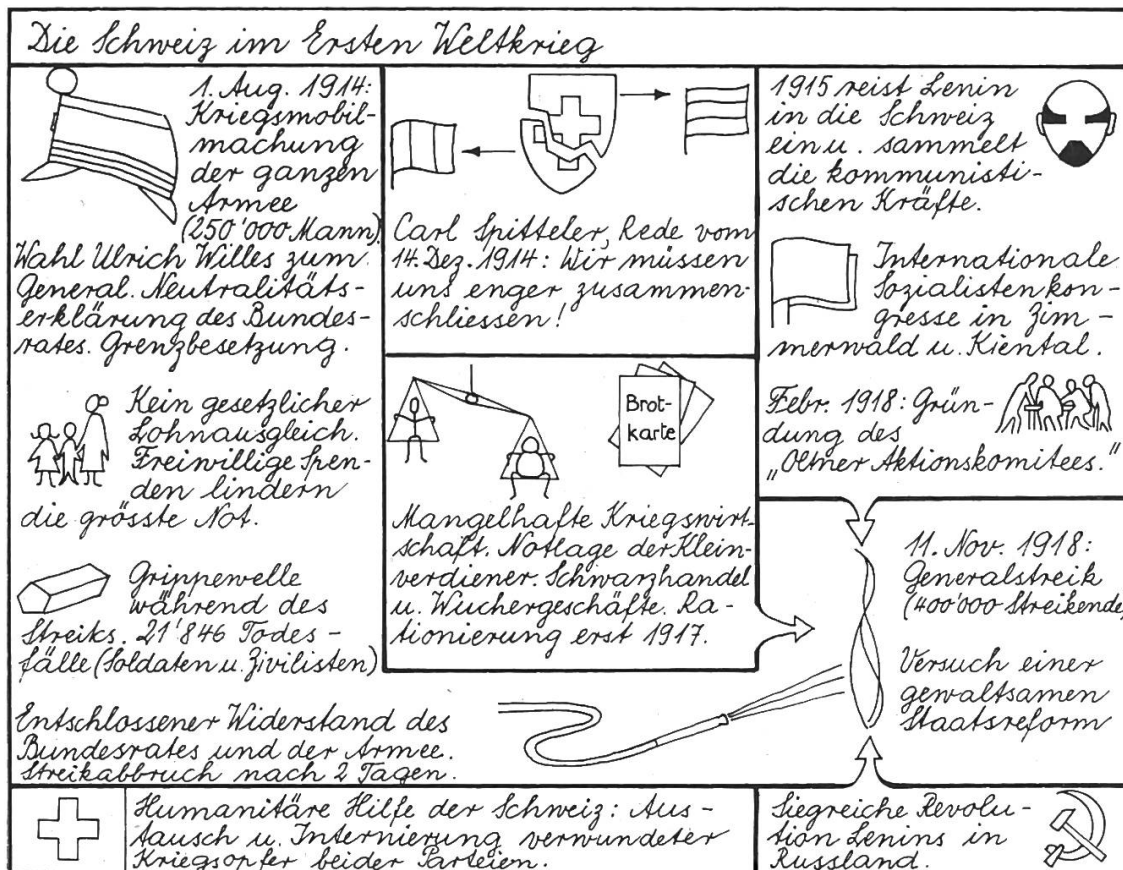 Die Schweiz im Ersten Weltkrieg
1. Aug. 1914:
Kriegsmobil-
machung
der ganzen
Armee
(250'000 Mann)
Wahl Ulrich Willes zum
General. Neutralitäts-
erklärung des Bundes-
rates. Grenzbesetzung.
Kein gesetzlicher
Lohnausgleich.
Freiwillige Spen-
den lindern
die grösste Not.
Grippewelle
während des
Streiks. 21'846 Todes-
fälle (Soldaten u. Zivilisten)
Entschlossener Widerstand des
Bundesrates und der Armee.
Streikabbruch nach 2 Tagen.
Carl Spitteler, Rede vom
14. Dez. 1914: Wir müssen
uns enger zusammen-
schliessen!
Brot-
karte
Mangelhafte Kriegswirt-
schaft. Notlage der Klein-
verdiener. Schwarzhandel
u. Wuchergeschäfte. Ra-
tionierung erst 1917.
1915 reist Lenin
in die Schweiz
ein u. sammelt
die kommunisti-
schen Kräfte.
Internationale
Sozialistenkon-
gresse in Zim-
merwald u. Kiental.
Febr. 1918: Grün-
dung des
"Oltner Aktionskomitees."
11. Nov. 1918:
Generalstreik
(400'000 Streikende)
Versuch einer
gewaltsamen
Staatsreform
Humanitäre Hilfe der Schweiz: Aus-
tausch u. Internierung verwundeter
Kriegsopfer beider Parteien.
Siegreiche Revolu-
tion Lenins in
Russland.